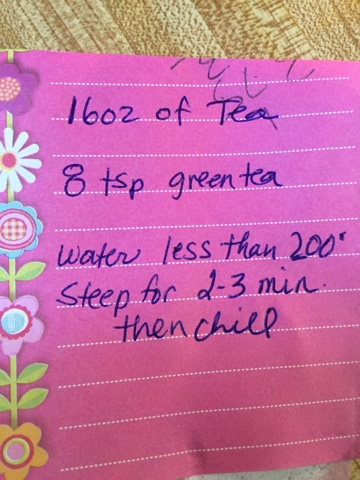 16oz of Tea
8 tsp green tea
water less than 200°
Steep for 2-3 min.
then chill